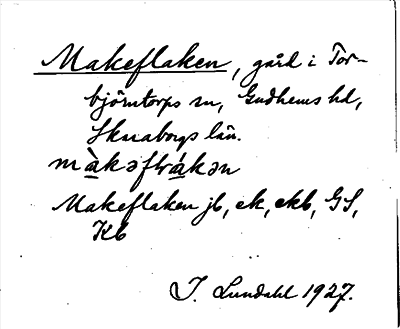 Makeflaken, gård i Tor-
björntorps sn, Gudhems hd,
Skaraborgs län.
màkəflákən
Makeflaken jb, ek, ekb, GS,
Kb
I. Lundahl 1927.